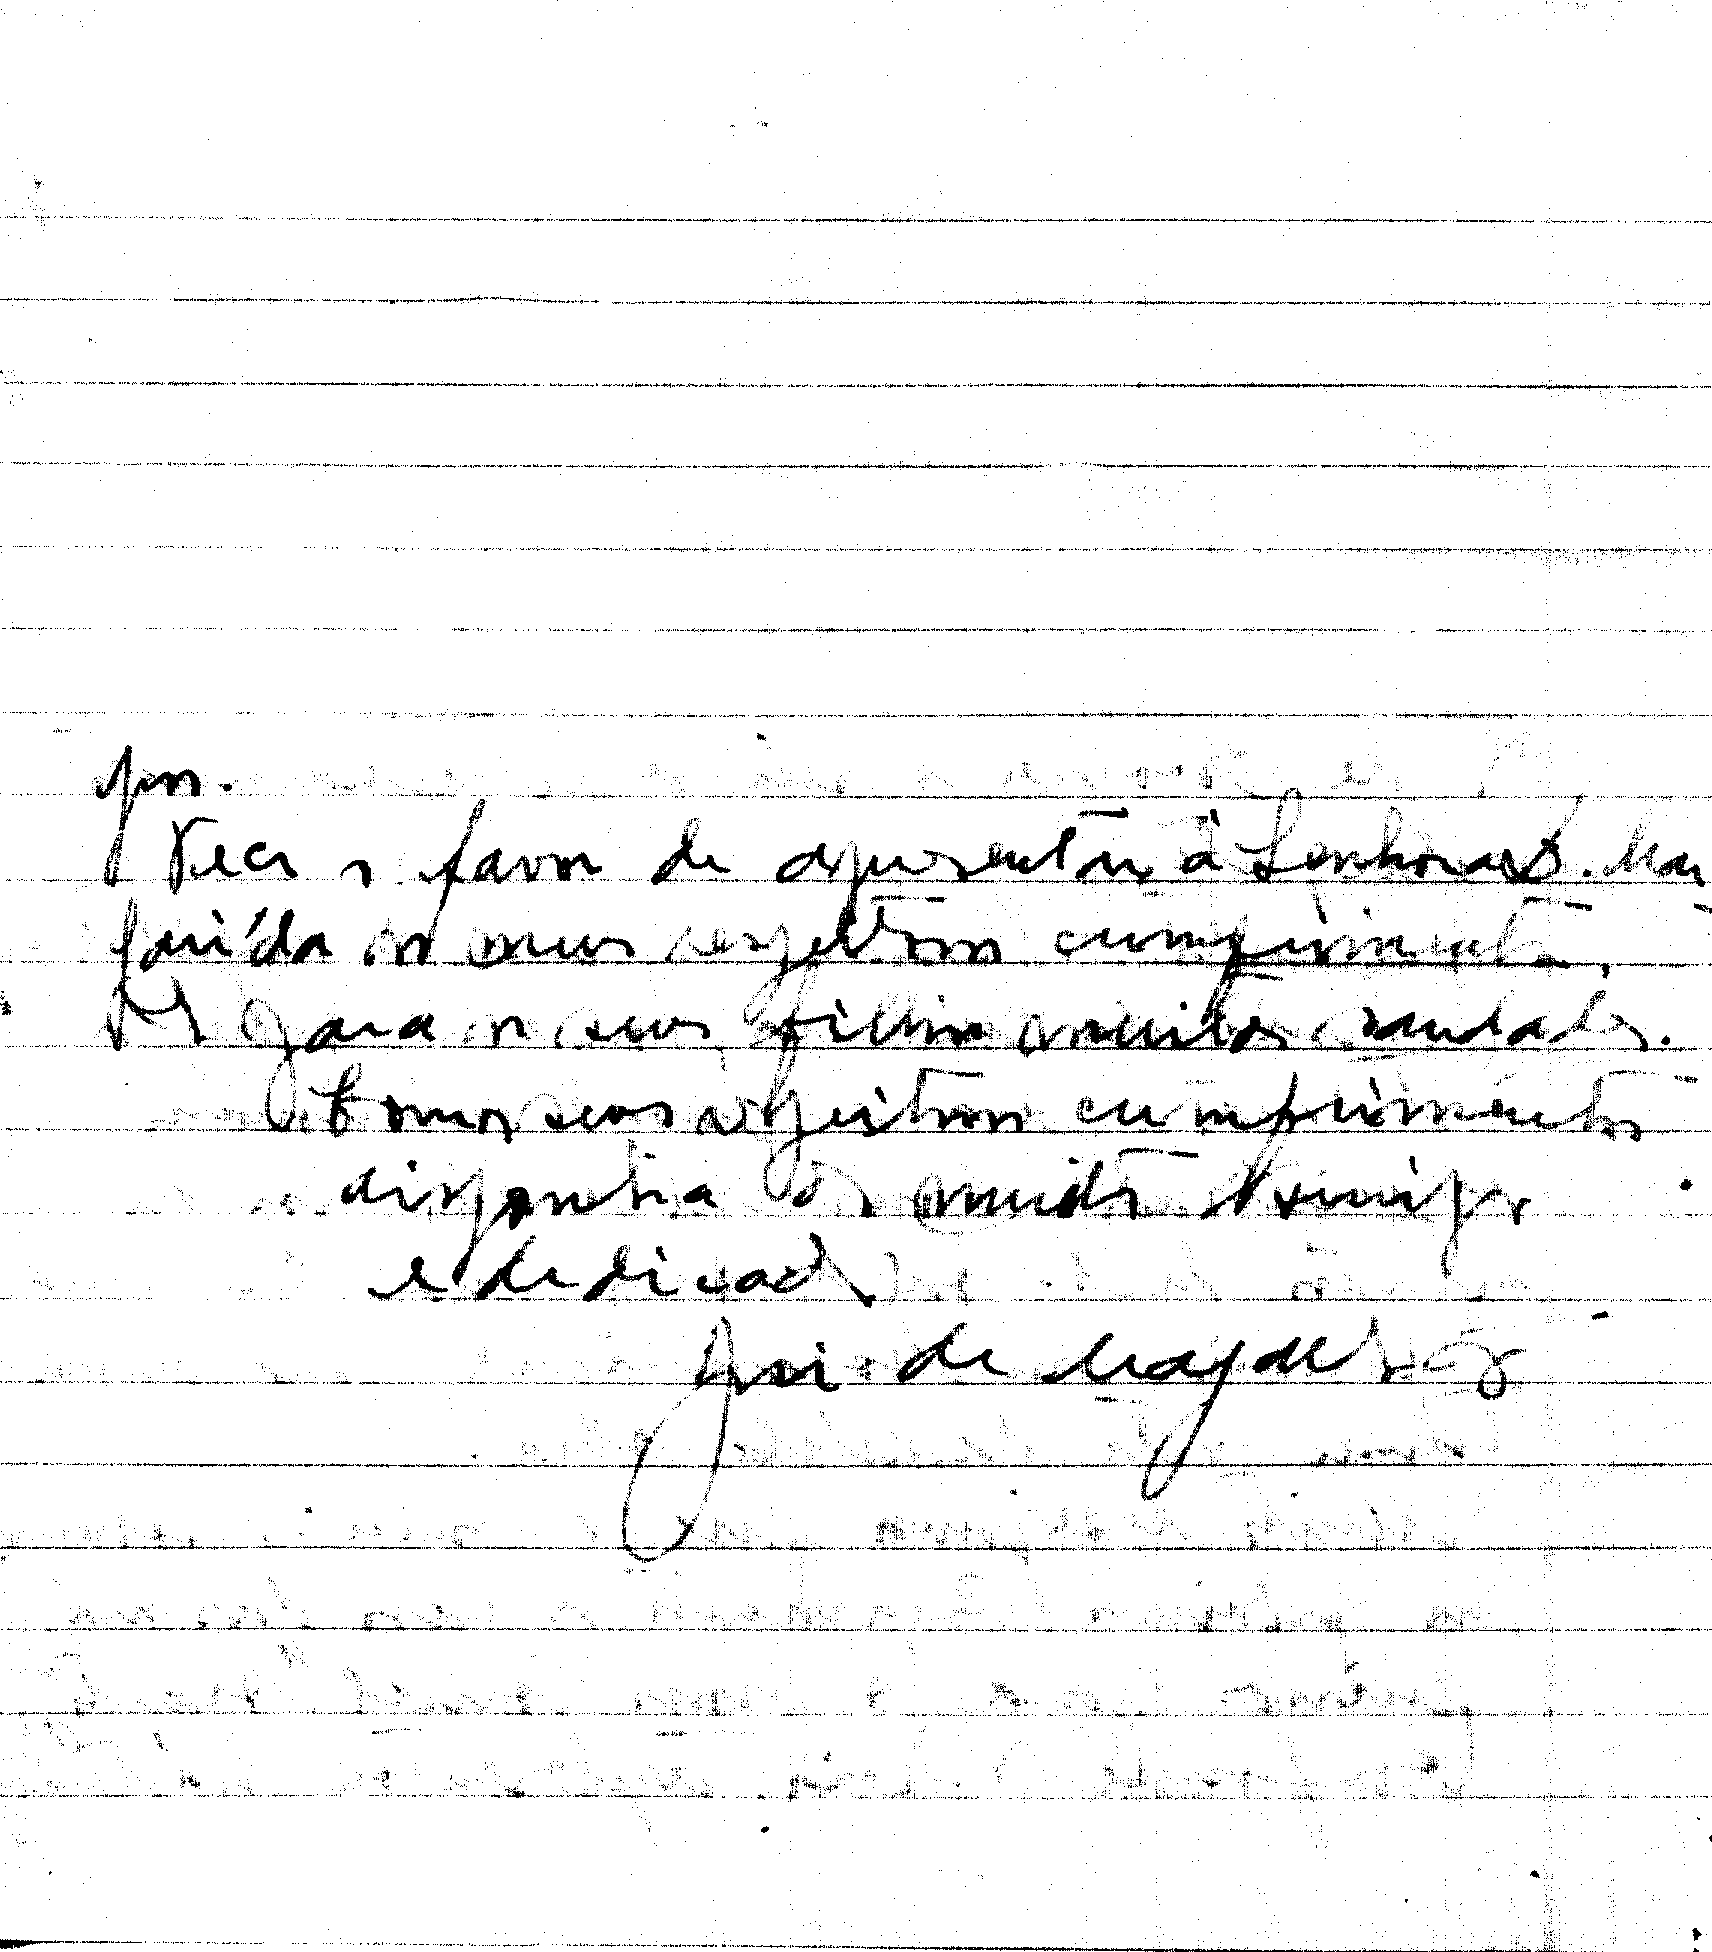 Peço o favor de apresentar à Senhora D. Mar
garida os meus respeitosos cumprimentos,
e para os seus filhos muitas saudades.
Com os seus respeitosos cumprimentos
disponha do muito amigo
e dedicado
José de